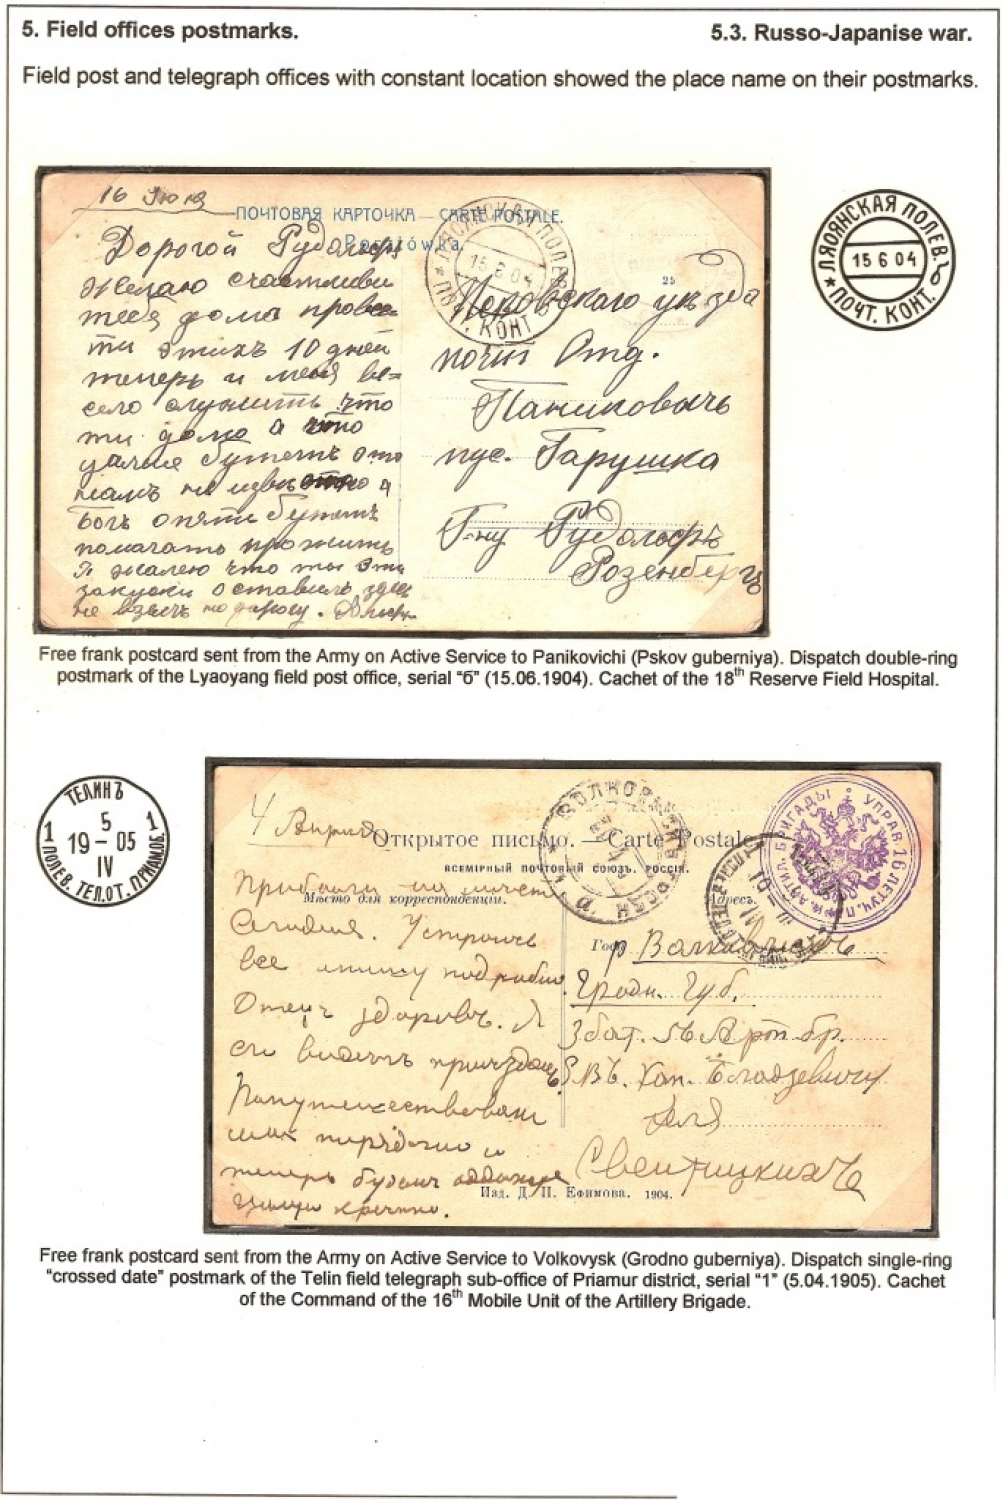 5. Field offices postmarks.
5.3. Russo-Japanise war.
Field post and telegraph offices with constant location showed the place name on their postmarks.
16 Июня
ПОЧТОВАЯ КАРТОЧКА — CARTE POSTALE.
Pocztówka.
Дорогой Рудольф
желаю счастливи
тебя дома прове-
ти этихъ 10 дней
теперь и меня ве=
село служить что
ти дома а что
дальше будетъ это
намъ не извѣстно а
Богъ опяти будетъ
помагать прожить
Я жалею что ты эти
закуски оставилъ здесь
не взялъ на дорогу.
25
Псковскаго уѣзда
почт Отд.
Паниковичь
пус. Гарушка
Г-ну Рудольфъ
Розенбергъ
ЛЯОЯНСКАЯ ПОЛЕВ.
ПОЧТ. КОНТ.
15 6 04
ЛЯОЯНСКАЯ ПОЛЕВ.
15 6 04
ПОЧТ. КОНТ. б
Free frank postcard sent from the Army on Active Service to Panikovichi (Pskov guberniya). Dispatch double-ring
postmark of the Lyaoyang field post office, serial “б” (15.06.1904). Cachet of the 18th Reserve Field Hospital.
ТЕЛИНЪ
5
1 19 – 05 1
IV
ПОЛЕВ. ТЕЛ.ОТ. ПРИАМ.ОБ.
4 Априля
Открытое письмо. — Carte Postale
ВСЕМІРНЫЙ ПОЧТОВЫЙ СОЮЗЪ. РОССІЯ.
Мѣсто для корреспонденціи.
Адресъ.
Прибыли на место
Сегодня. Устроюсь
все опишу подробно
Отецъ здоровъ. Я
его видѣлъ проѣздомъ.
Попутешествовали
мы порядочно и
теперь будемъ
Целую крепко.
Гор. Волковыскъ
Гродн. Губ.
3 бат. Арт. бр.
Е.ВБ. Кап.
для
Свентицкихъ
Изд. Д. П. Ефимова. 1904.
ВОЛКОВЫСКЪ
УПРАВ. 16 ЛЕТУЧ. П. АРТИЛ. БРИГАДЫ
Free frank postcard sent from the Army on Active Service to Volkovysk (Grodno guberniya). Dispatch single-ring
“crossed date” postmark of the Telin field telegraph sub-office of Priamur district, serial “1” (5.04.1905). Cachet
of the Command of the 16th Mobile Unit of the Artillery Brigade.